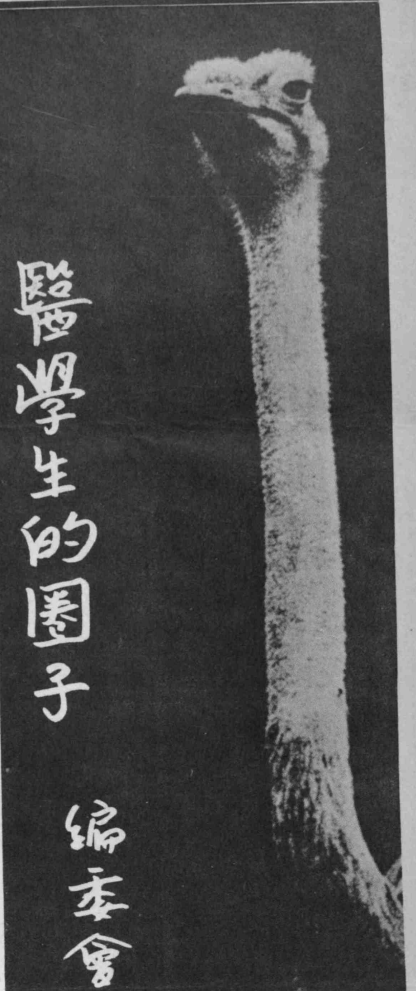 醫學生的圈子
編委會